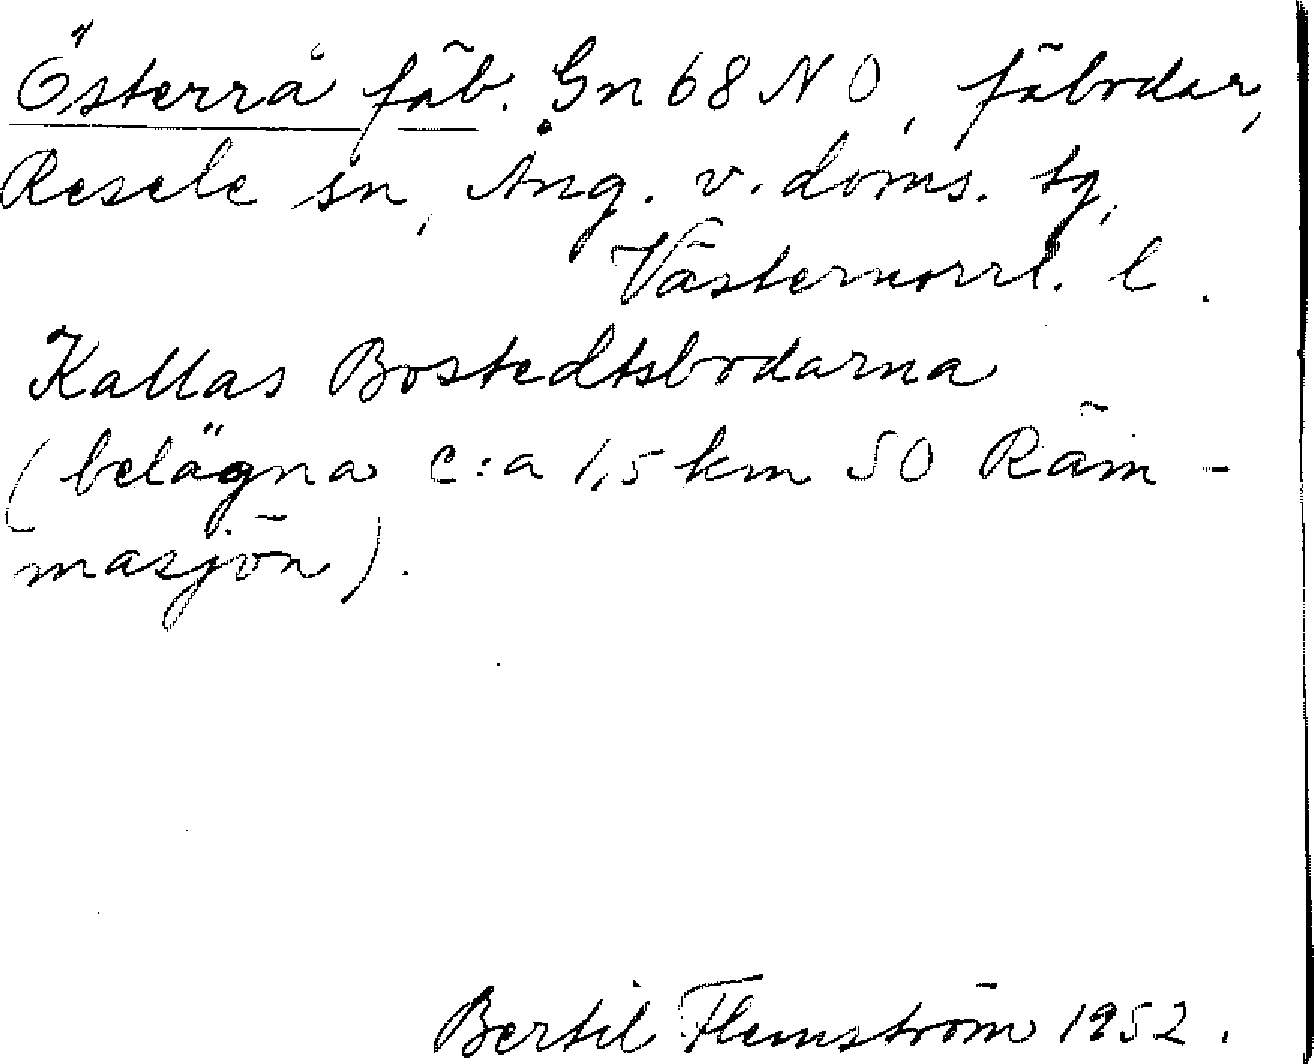 Österrå fäb. Gn 68 NO, fäbodar,
Resele sn, Ång. v. doms. tg,
Västernorrl. l.
Kallas Bostedtsbodarna
(belägna c:a 1,5 km SO Räm-
masjön).
Bertil Flemström 1952.